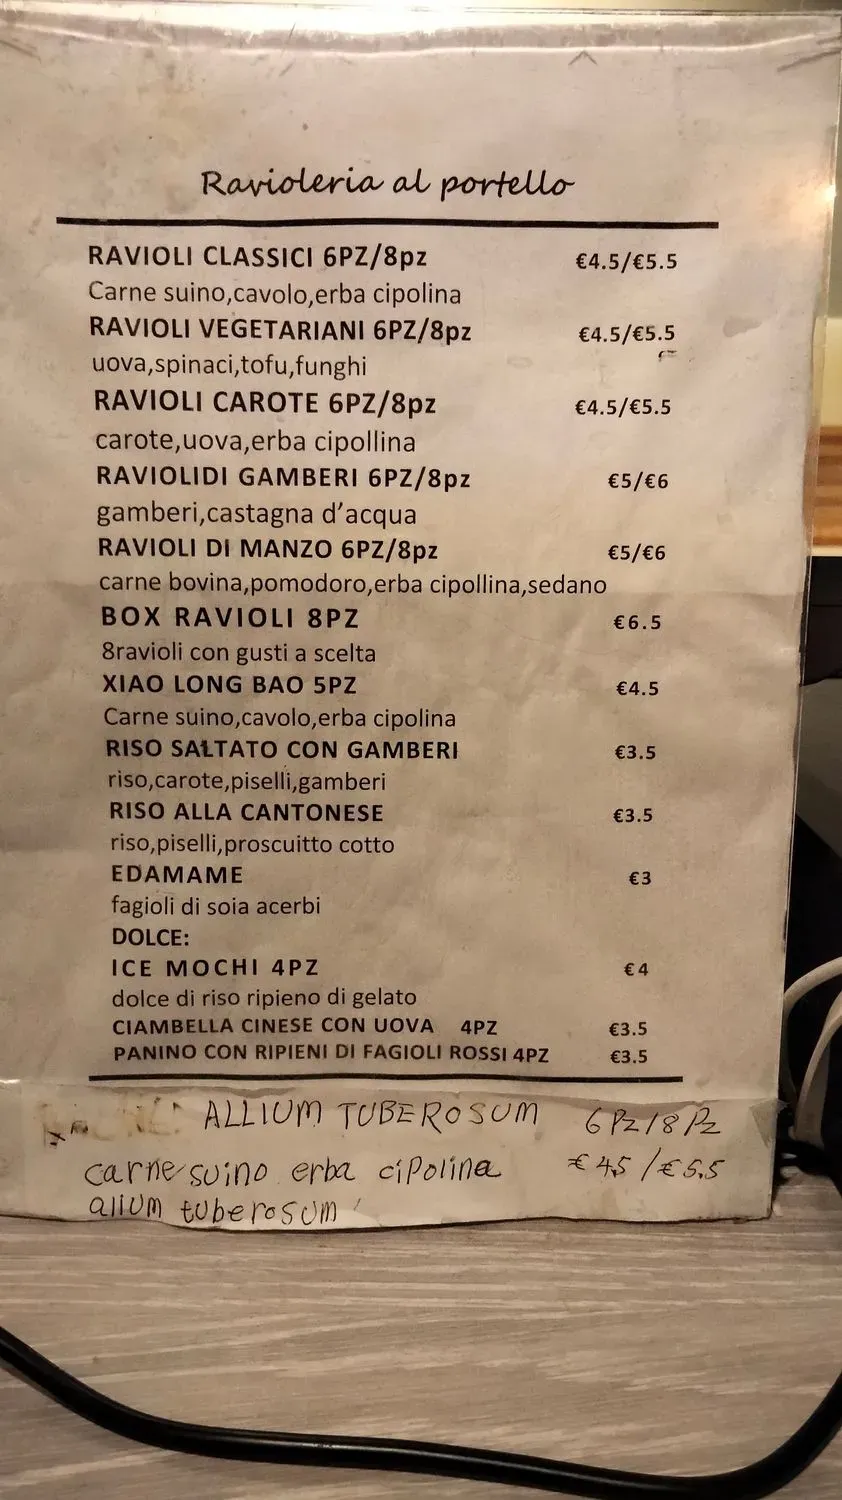 Ravioleria al portello
RAVIOLI CLASSICI 6PZ/8pz €4.5/€5.5
Carne suino,cavolo,erba cipolina
RAVIOLI VEGETARIANI 6PZ/8pz €4.5/€5.5
uova,spinaci,tofu,funghi
RAVIOLI CAROTE 6PZ/8pz €4.5/€5.5
carote,uova,erba cipollina
RAVIOLIDI GAMBERI 6PZ/8pz €5/€6
gamberi,castagna d'acqua
RAVIOLI DI MANZO 6PZ/8pz €5/€6
carne bovina,pomodoro,erba cipollina,sedano
BOX RAVIOLI 8PZ €6.5
8ravioli con gusti a scelta
XIAO LONG BAO 5PZ €4.5
Carne suino,cavolo,erba cipolina
RISO SALTATO CON GAMBERI €3.5
riso,carote,piselli,gamberi
RISO ALLA CANTONESE €3.5
riso,piselli,proscuitto cotto
EDAMAME €3
fagioli di soia acerbi
DOLCE:
ICE MOCHI 4PZ €4
dolce di riso ripieno di gelato
CIAMBELLA CINESE CON UOVA 4PZ €3.5
PANINO CON RIPIENI DI FAGIOLI ROSSI 4PZ €3.5
ALLIUM TUBEROSUM 6Pz/8Pz
carne suino erba cipolina €4.5/€5.5
alium tuberosum